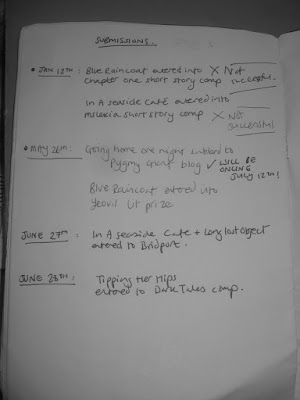 SUBMISSIONS...
JAN 12TH: Blue Raincoat entered into X Not
Chapter one short story comp successful.
In A Seaside Café entered into
mslexia short story comp X Not
successful
MAY 26TH: Going home one night submitted to
Pygmy Giant blog ✓ WILL BE
ONLINE
JULY 12TH!
Blue Raincoat entered into
Yeovil lit prize
JUNE 27TH: In A Seaside Cafe + Long lost object
entered to Bridport.
JUNE 28TH: Tipping Her Hips
entered to Dark Tales comp.